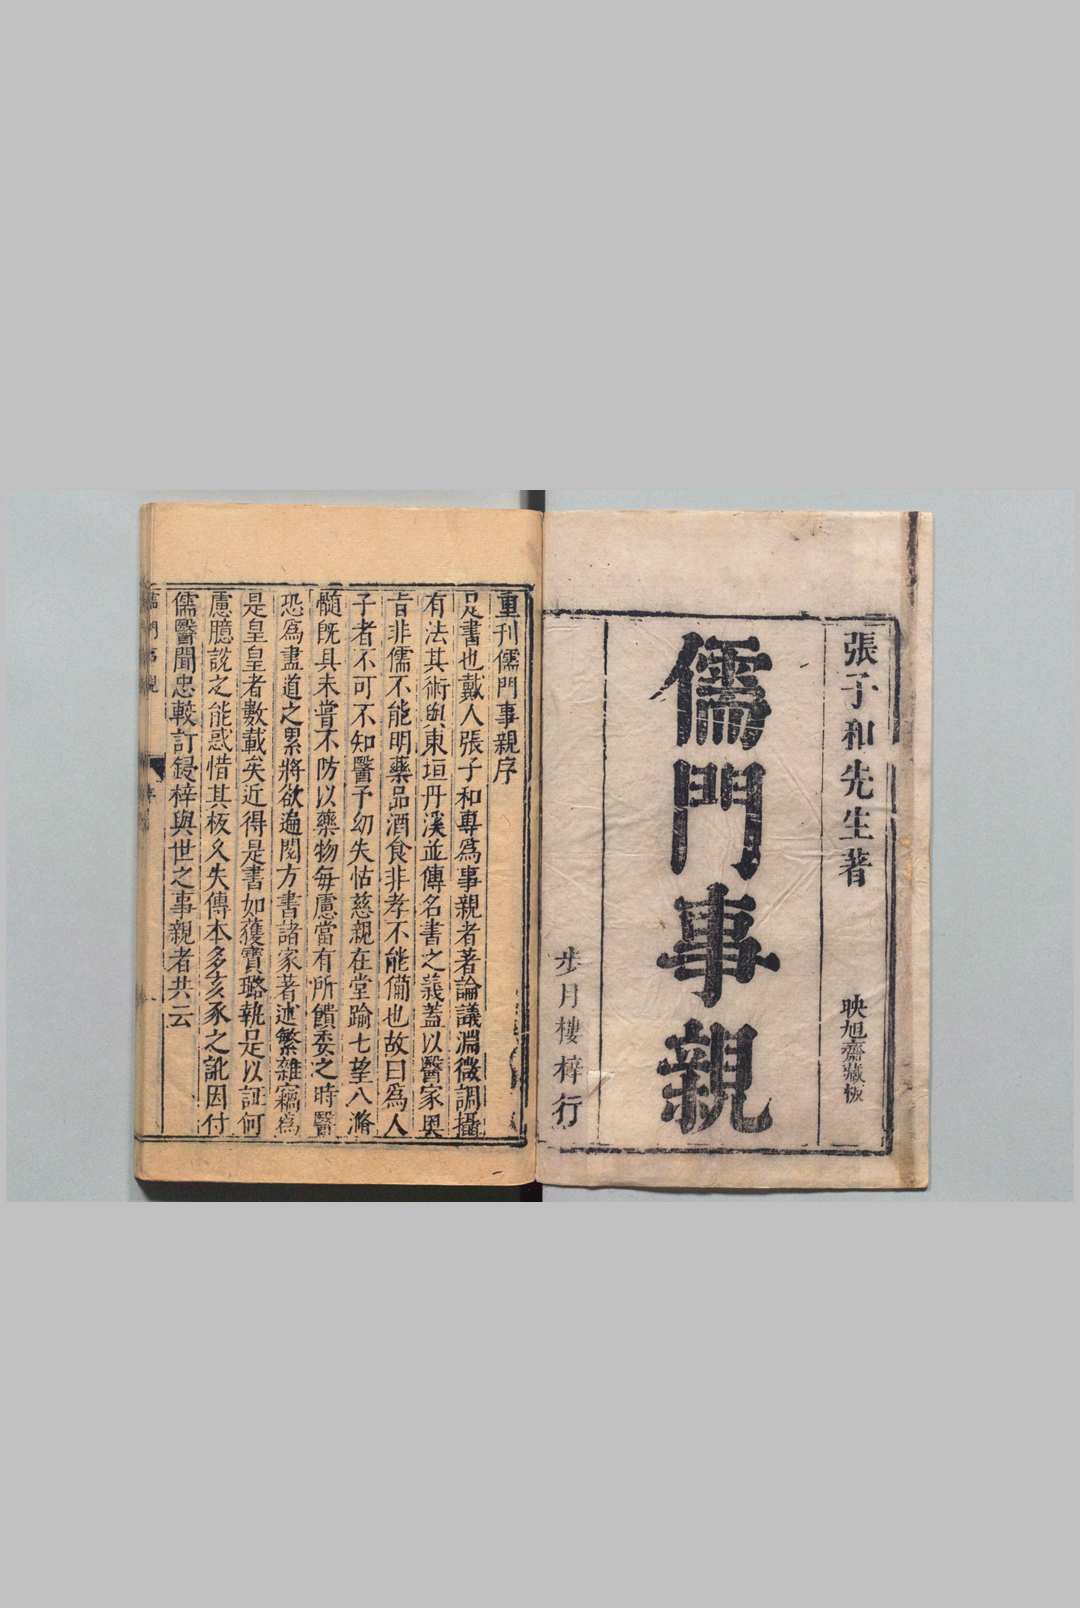 張子和先生著
映旭齋藏板
儒門事親
步月樓梓行
重刊儒門事親序
是書也戴人張子和專爲事親者著論議淵微調攝
有法其術與東垣丹溪並傳名書之義蓋以醫家奥
旨非儒不能明藥品酒食非孝不能備也故曰爲人
子者不可不知醫予幼失怙慈親在堂踰七望八滫
髓既具未嘗不防以藥物每慮當有所饋委之時醫
恐爲盡道之累將欲遍閱方書諸家著述繁雜竊爲
是皇皇者數載矣近得是書如獲寶璐執是以証何
慮臆說之能惑惜其板久失傳本多亥豕之訛因付
儒醫聞忠較訂鋟梓與世之事親者共云
儒門事親
序